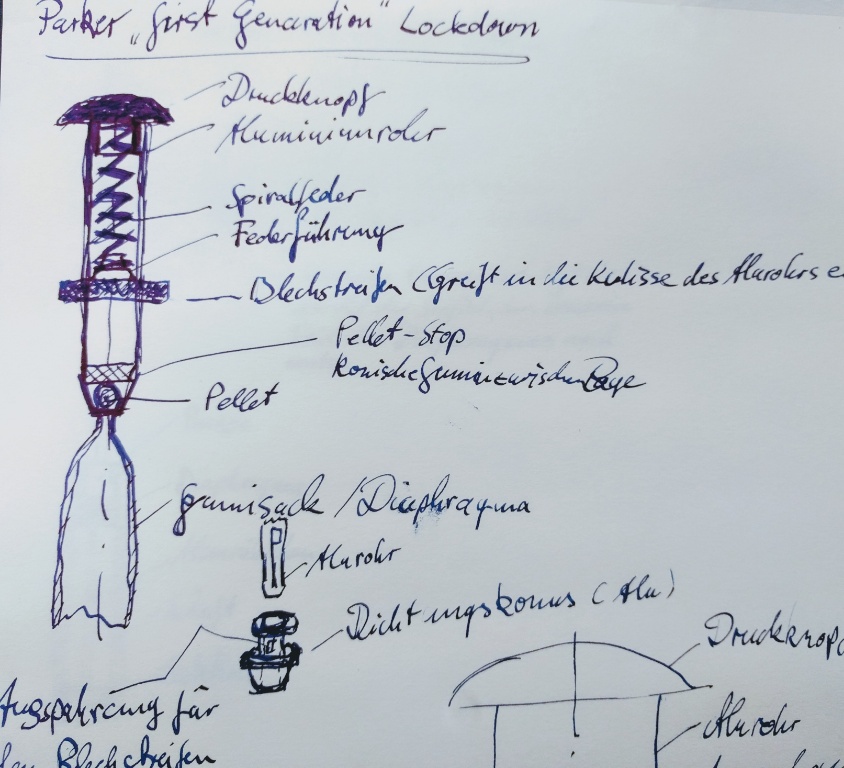 Parker „first Generation" Lockdown
Druckknopf
Aluminiumrohr
Spiralfeder
Federführung
Blechstreifen (Greift in die Kulisse des Alurohrs e
Pellet-Stop
Konische Gummizwischenlage
Pellet
Gumisack / Diaphragma
Alurohr
Dichtungskonus (Alu)
Druckknopf
Ausspahrung für
den Blechstreifen
Alurohr